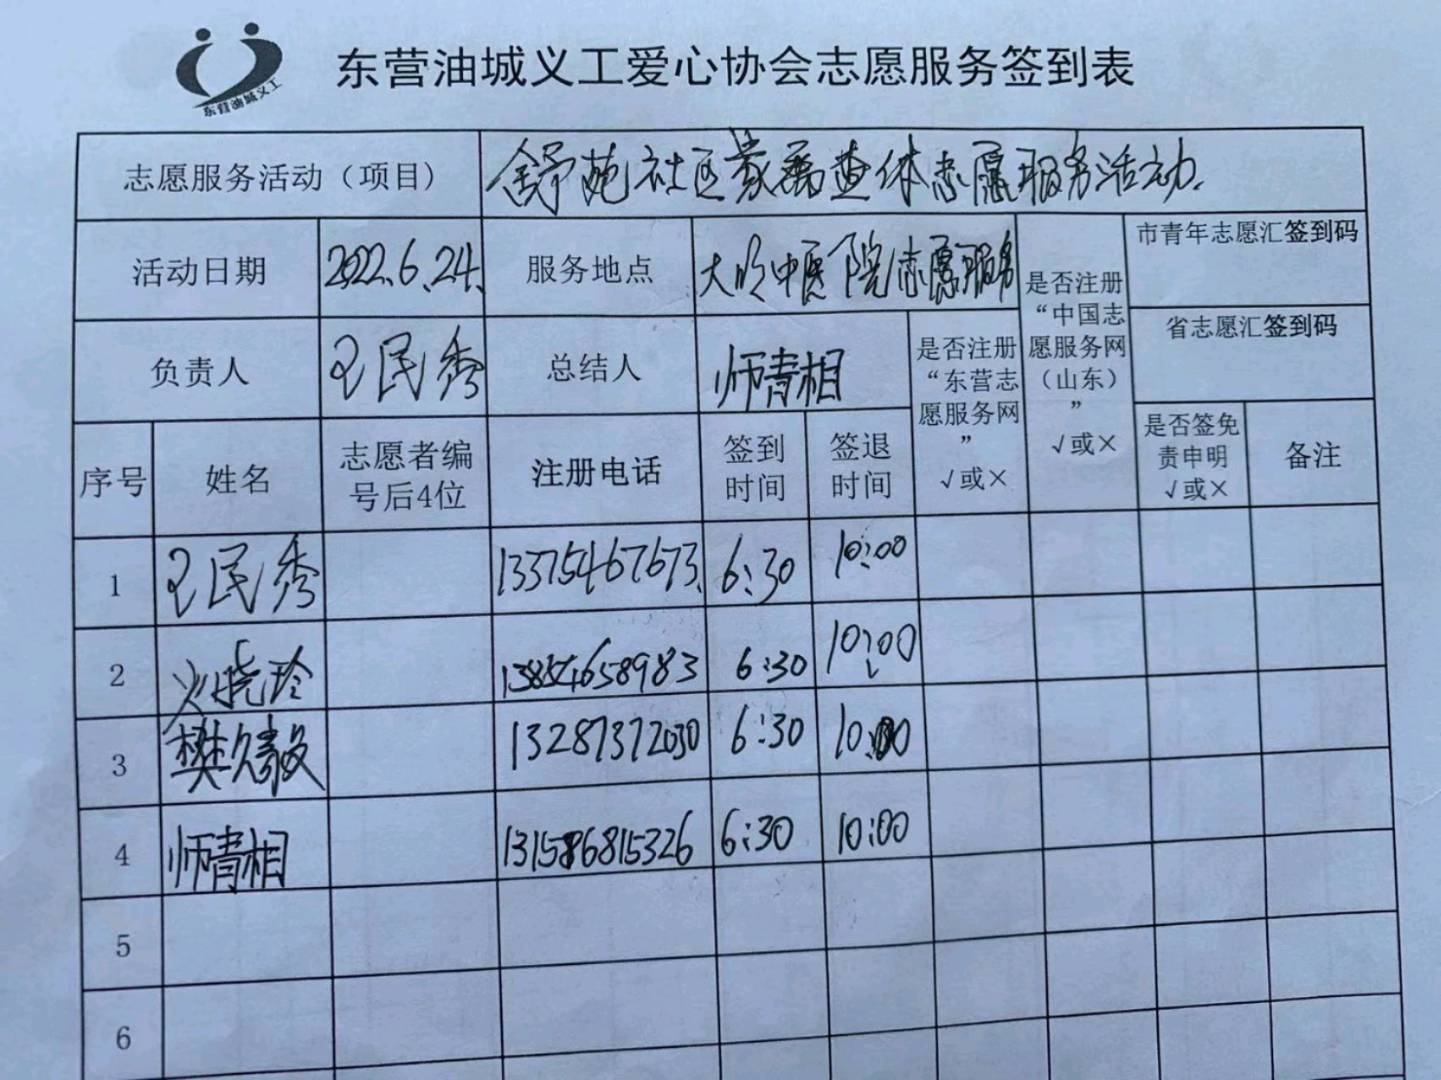 东营油城义工
东营油城义工爱心协会志愿服务签到表
志愿服务活动（项目） 舒苑社区 查体志愿服务活动.
活动日期 2022.6.24. 服务地点 大 中医院志愿服务
是否注册“中国志愿服务网（山东）” √或×
市青年志愿汇签到码
省志愿汇签到码
负责人 王民秀 总结人 师青相
是否注册“东营志愿服务网” √或×
序号 姓名 志愿者编号后4位 注册电话 签到时间 签退时间 是否签免责申明 √或× 备注
1 王民秀 13375467673. 6:30 10:00
2 晓玲 13854658983 6:30 10:00
3 樊 13287372030 6:30 10:00
4 师青相 6:30 10:00
5
6